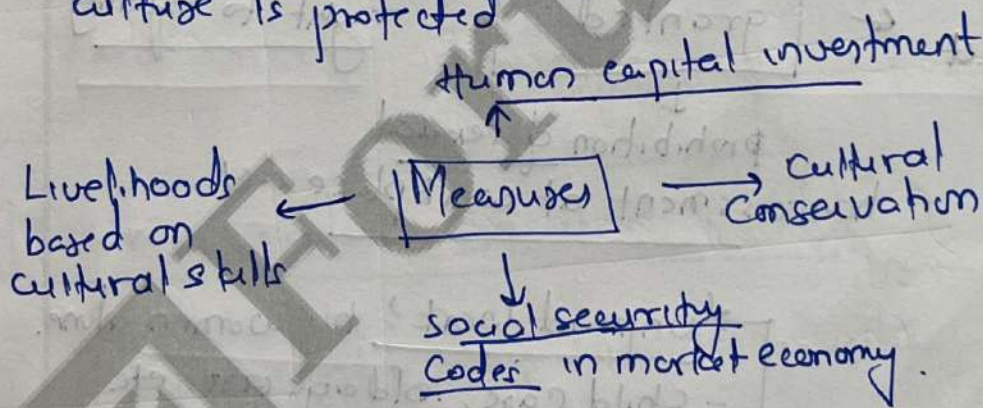 culture is protected
Human capital investment
Livelihoods
based on
cultural skills
Measures
Cultural
Conservation
social security
Codes in market economy.